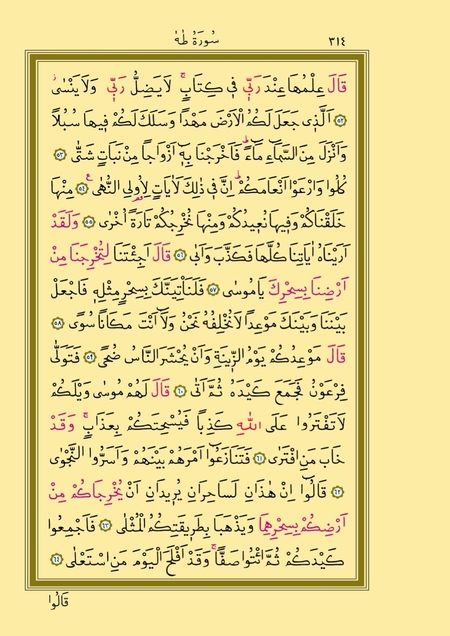 سُورَةُ طٰهٰ ٣١٤
قَالَ عِلْمُهَا عِنْدَ رَبّ۪ي ف۪ي كِتَابٍۚ لَا يَضِلُّ رَبّ۪ي وَلَا يَنْسٰىۘ
﴿٥٢﴾ اَلَّذ۪ي جَعَلَ لَكُمُ الْاَرْضَ مَهْدًا وَسَلَكَ لَكُمْ ف۪يهَا سُبُلًا
وَاَنْزَلَ مِنَ السَّمَٓاءِ مَٓاءًۜ فَاَخْرَجْنَا بِه۪ٓ اَزْوَاجًا مِنْ نَبَاتٍ شَتّٰى ﴿٥٣﴾
كُلُوا وَارْعَوْا اَنْعَامَكُمْۜ اِنَّ ف۪ي ذٰلِكَ لَاٰيَاتٍ لِاُو۬لِي النُّهٰى۟ ﴿٥٤﴾ مِنْهَا
خَلَقْنَاكُمْ وَف۪يهَا نُع۪يدُكُمْ وَمِنْهَا نُخْرِجُكُمْ تَارَةً اُخْرٰى ﴿٥٥﴾ وَلَقَدْ
اَرَيْنَاهُ اٰيَاتِنَا كُلَّهَا فَكَذَّبَ وَاَبٰى ﴿٥٦﴾ قَالَ اَجِئْتَنَا لِتُخْرِجَنَا مِنْ
اَرْضِنَا بِسِحْرِكَ يَا مُوسٰى ﴿٥٧﴾ فَلَنَأْتِيَنَّكَ بِسِحْرٍ مِثْلِه۪ فَاجْعَلْ
بَيْنَنَا وَبَيْنَكَ مَوْعِدًا لَا نُخْلِفُهُ نَحْنُ وَلَٓا اَنْتَ مَكَانًا سُوًى ﴿٥٨﴾
قَالَ مَوْعِدُكُمْ يَوْمُ الزّ۪ينَةِ وَاَنْ يُحْشَرَ النَّاسُ ضُحًى ﴿٥٩﴾ فَتَوَلّٰى
فِرْعَوْنُ فَجَمَعَ كَيْدَهُ ثُمَّ اَتٰى ﴿٦٠﴾ قَالَ لَهُمْ مُوسٰى وَيْلَكُمْ
لَا تَفْتَرُوا عَلَى اللّٰهِ كَذِبًا فَيُسْحِتَكُمْ بِعَذَابٍۚ وَقَدْ
خَابَ مَنِ افْتَرٰى ﴿٦١﴾ فَتَنَازَعُٓوا اَمْرَهُمْ بَيْنَهُمْ وَاَسَرُّوا النَّجْوٰى
﴿٦٢﴾ قَالُٓوا اِنْ هٰذَانِ لَسَاحِرَانِ يُر۪يدَانِ اَنْ يُخْرِجَاكُمْ مِنْ
اَرْضِكُمْ بِسِحْرِهِمَا وَيَذْهَبَا بِطَر۪يقَتِكُمُ الْمُثْلٰى ﴿٦٣﴾ فَاَجْمِعُوا
كَيْدَكُمْ ثُمَّ ائْتُوا صَفًّاۚ وَقَدْ اَفْلَحَ الْيَوْمَ مَنِ اسْتَعْلٰى ﴿٦٤﴾
قَالُوا